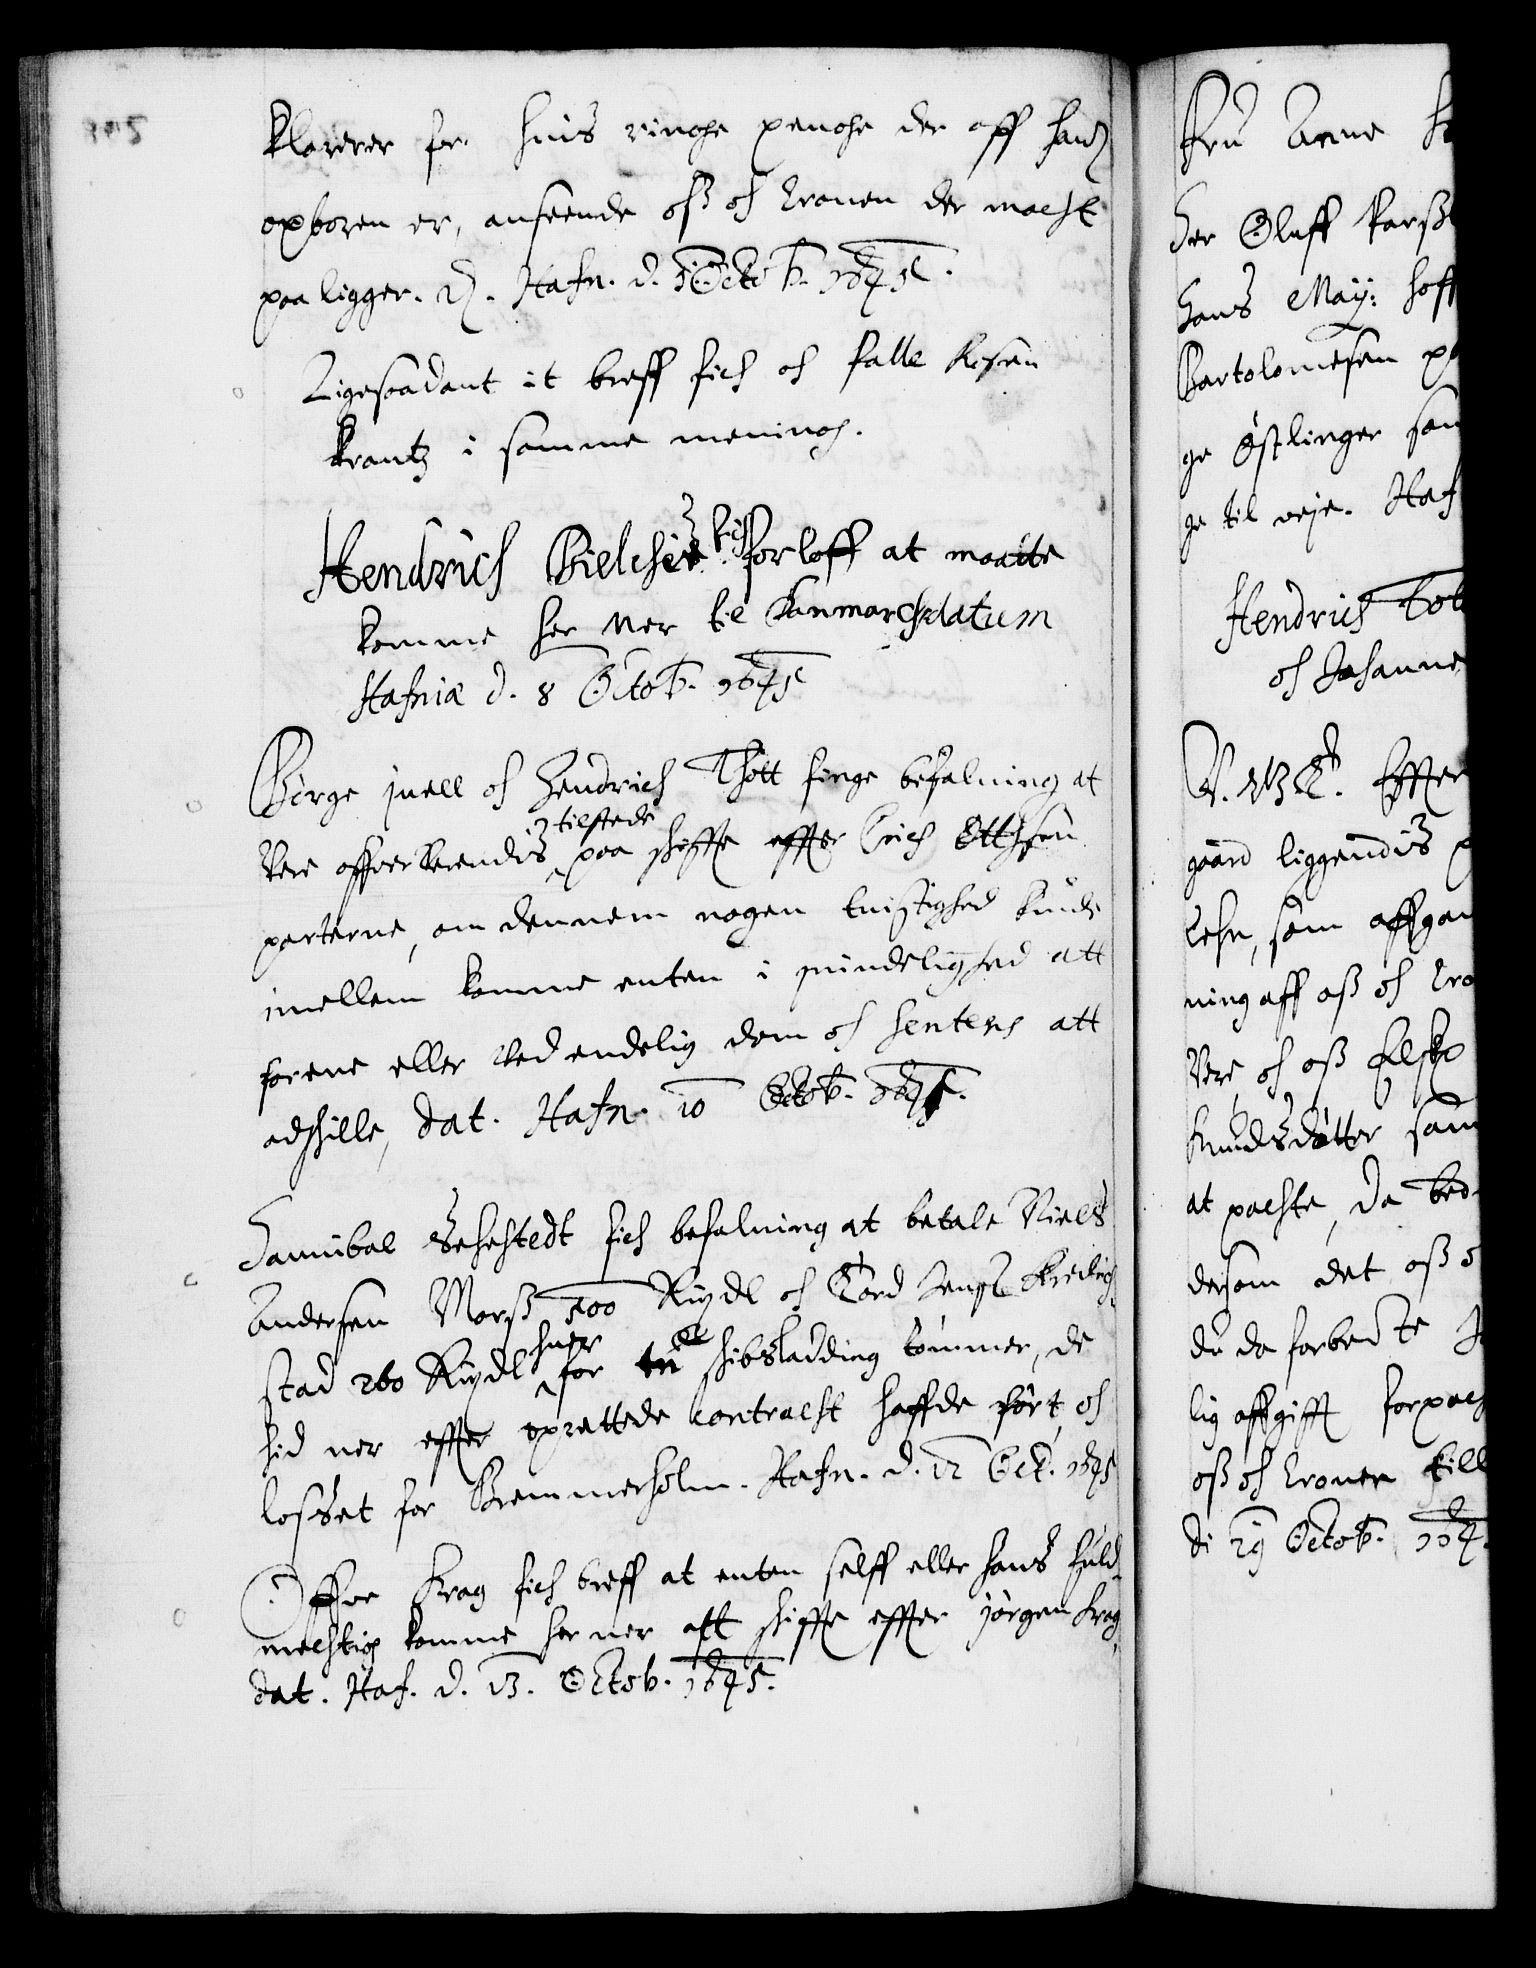 klarerer for huis ringhe penghe der aff hand
opboren er, anseende oss oc Cronen der macht
paa ligger. Hafn. d. 5 Octob. 1645.
Ligesaadant it breff fick oc Palle Rosen
krantz i samme meningh.
Hendrich Bielche fick forloff at maatte
komme her ner til Danmarch datum
Hafniæ d. 8 Octob. 1645
Börge Juell oc Hendrich Thott finge befalning at
vere offververendis tilstede paa skiffte effter Erich Ottesen
parterne, om dennem nogen tuistighed kunde
imellem komme enten i mindelighed att
forene eller ved endelig dom oc sentens att
adskille, dat. Hafn. 10 Octob. 1645.
Hannibal Sehestedt fich befalning at betale Niels
Andersen Morss 500 Rixdl oc Cord Jensen
stad 260 Rixdl huer for skibsladding tömmer, de
hid ner effter oprettede contracht haffde fört oc
losset for Bremmerholm. Hafn. d. 12 Oct. 1645
Offve Krag fich breff at enten selff eller hans fuld-
mechtig komme her ner att skiffte effter Jörgen Krag,
dat. Haf. d. 13. Octob. 1645.
Fru Anne
Her Oluff
Hans May: hoff
Bartolomesen
ge Östlinger
ge til veje. Haf
Hendrich
oc Johanne
V. G. T. Effter
gaard liggendis
Lehn, som affgan
ning aff oss oc Cro
Vere, oc oss Elske
Knudsdatter sam
at pachte, da bed-
dersom det oss
du da forbente
lig affgifft forpach
oss oc Cronen till
di 29 Octob. 164